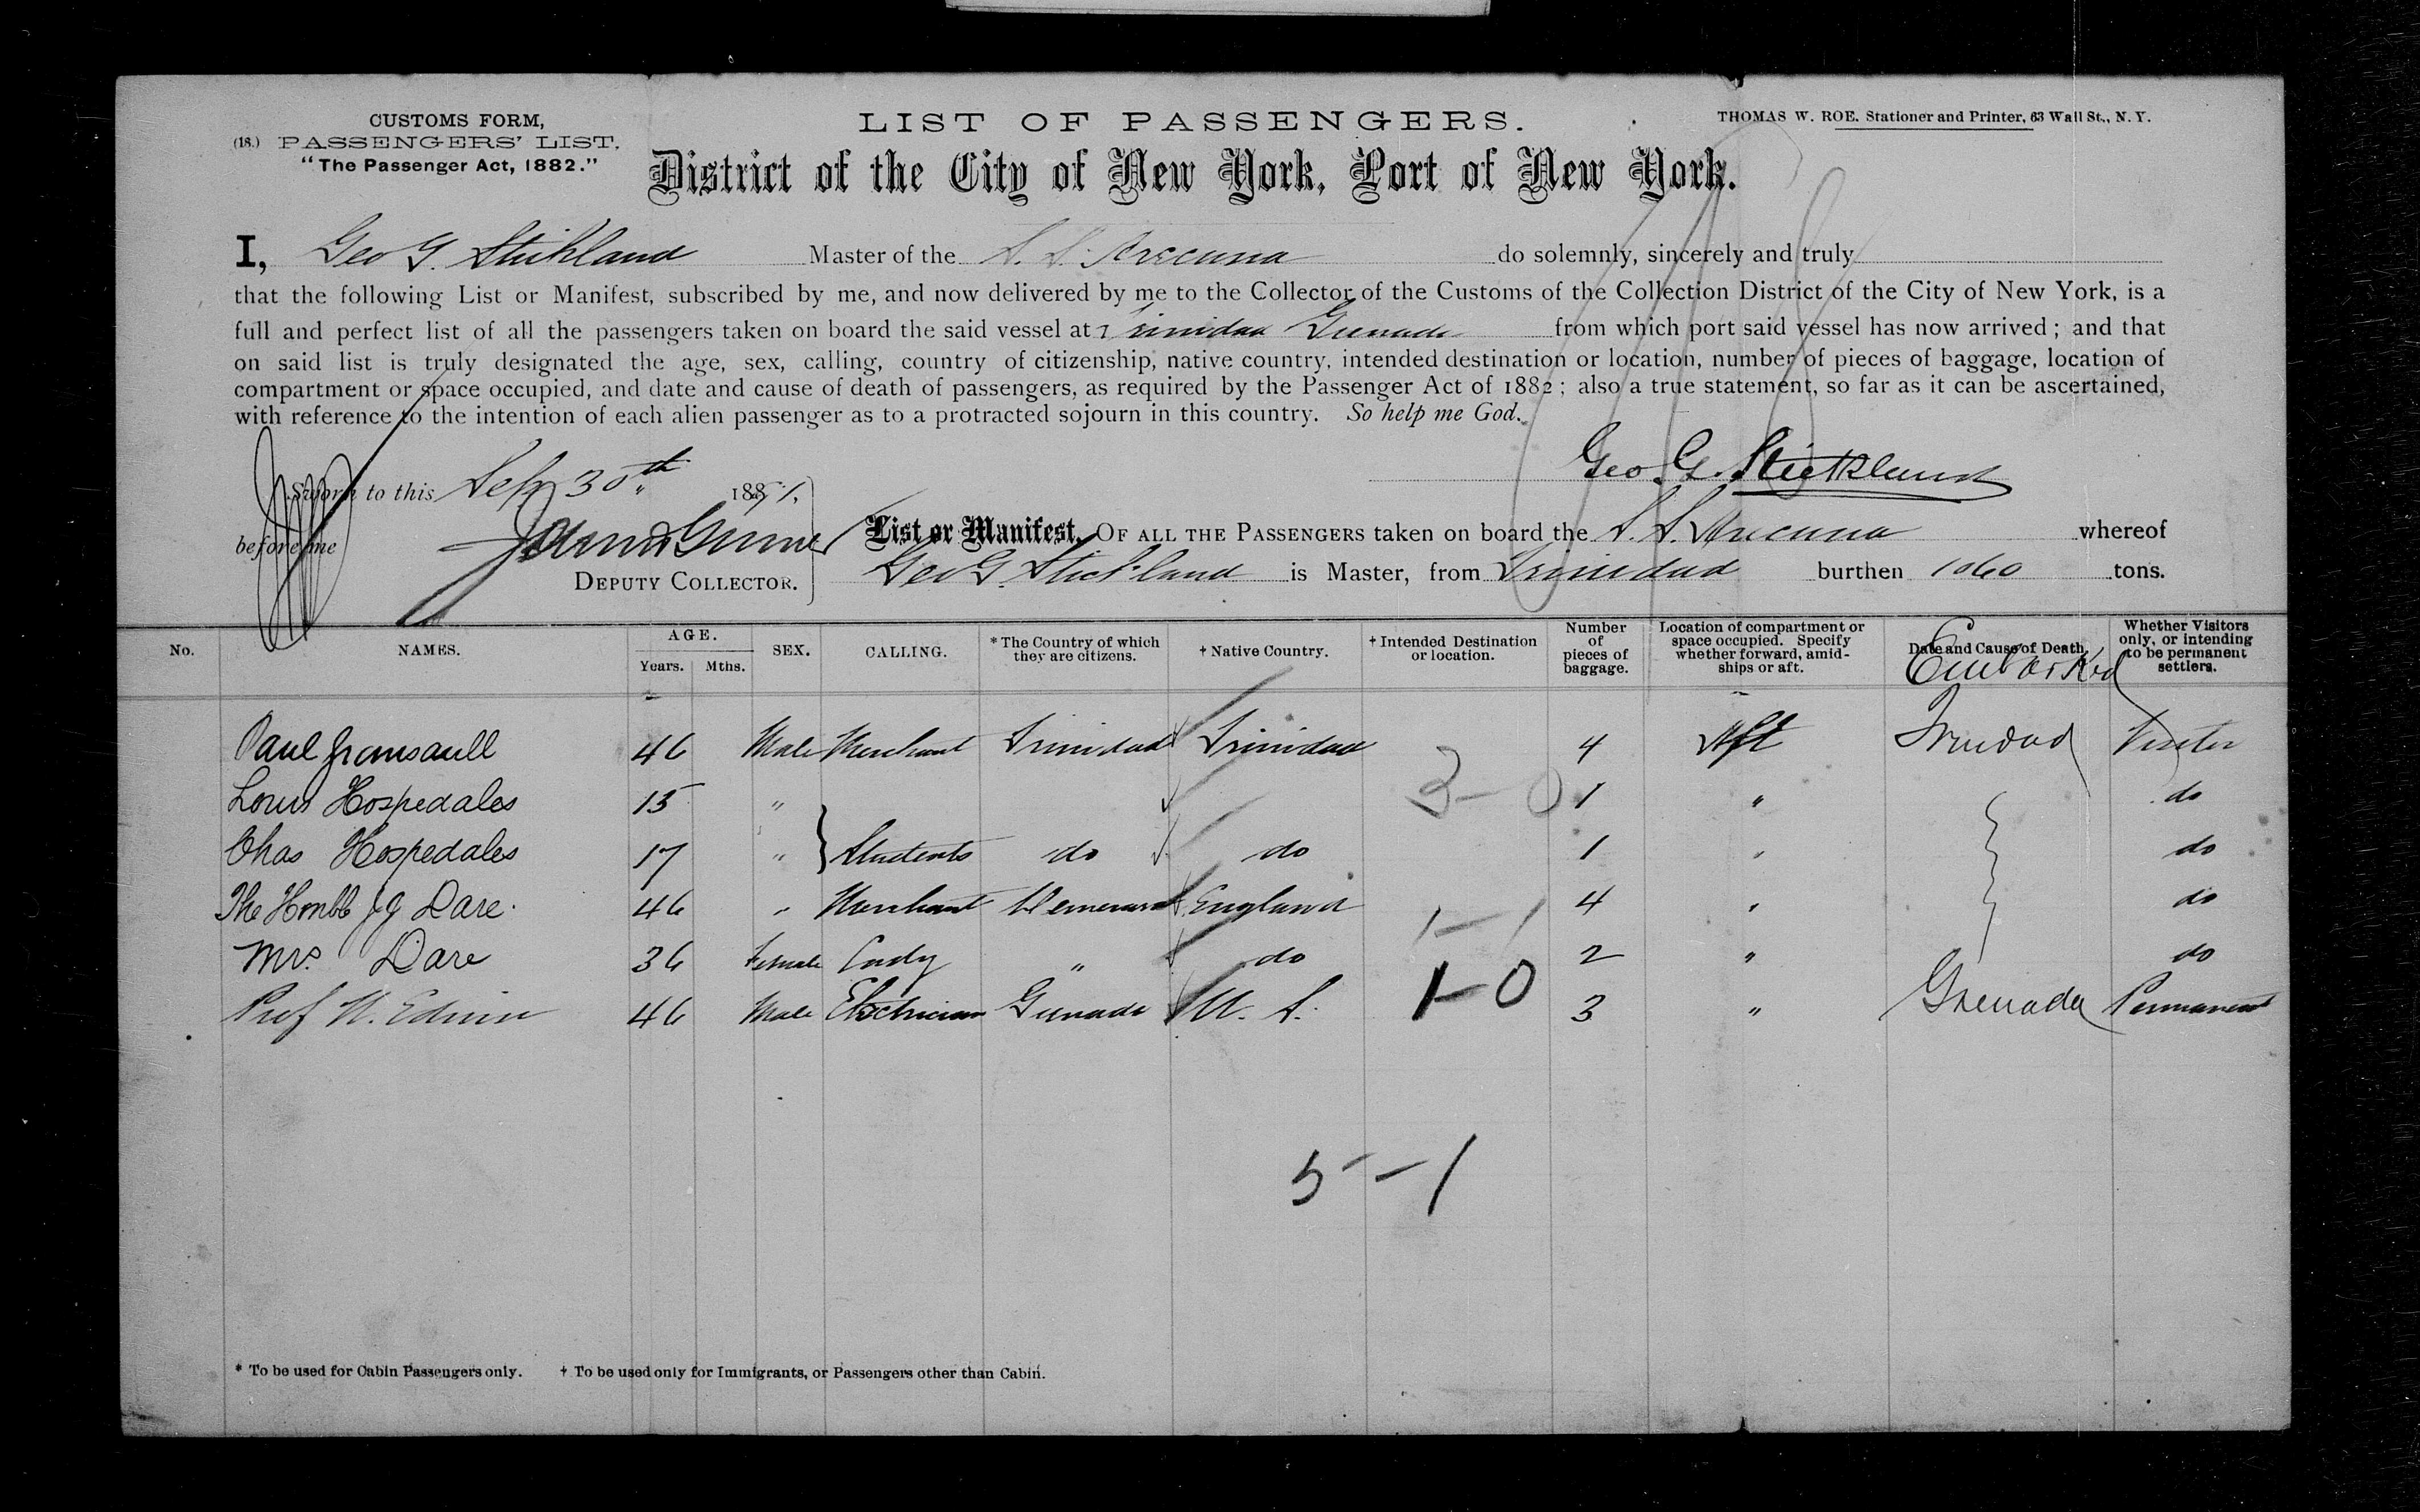 CUSTOMS FORM,
(18.) PASSENGERS' LIST.
"The Passenger Act, 1882."
LIST OF PASSENGERS.
THOMAS W. ROE. Stationer and Printer, 63 Wall St., N. Y.
District of the City of New York, Port of New York.
I, Geo G. Strickland Master of the S. S. Arecuna do solemnly, sincerely and truly
that the following List or Manifest, subscribed by me, and now delivered by me to the Collector of the Customs of the Collection District of the City of New York, is a
full and perfect list of all the passengers taken on board the said vessel at Trinidad Grenada from which port said vessel has now arrived; and that
on said list is truly designated the age, sex, calling, country of citizenship, native country, intended destination or location, number of pieces of baggage, location of
compartment or space occupied, and date and cause of death of passengers, as required by the Passenger Act of 1882; also a true statement, so far as it can be ascertained,
with reference to the intention of each alien passenger as to a protracted sojourn in this country. So help me God.
Geo. G. Strickland
Sworn to this Sep 30th 1891.
before me
DEPUTY COLLECTOR.
List or Manifest, OF ALL THE PASSENGERS taken on board the S. S. Arecuna whereof
Geo G. Strickland is Master, from Trinidad burthen 1060 tons.
No. NAMES. AGE. Years. Mths. SEX. CALLING. * The Country of which they are citizens. † Native Country. † Intended Destination or location. Number of pieces of baggage. Location of compartment or space occupied. Specify whether forward, amidships or aft. Date and Cause of Death Embarked Whether Visitors only, or intending to be permanent settlers.
Paul 46 Male Merchant Trinidad Trinidad 4 Aft Trinidad Visitor
Louis Hospedales 15 " 3-0 1 " do
Chas Hospedales 17 " } Students do do 1 " do
The Honble J G Dare. 46 " Merchant Demerara England 1-1 4 " do
Mrs. Dare 36 Female Lady " do 2 " do
Prof W. Edwin 46 Male Electrician Grenada U. S. 1-0 3 " Grenada Permanent
5-1
* To be used for Cabin Passengers only. † To be used only for Immigrants, or Passengers other than Cabin.